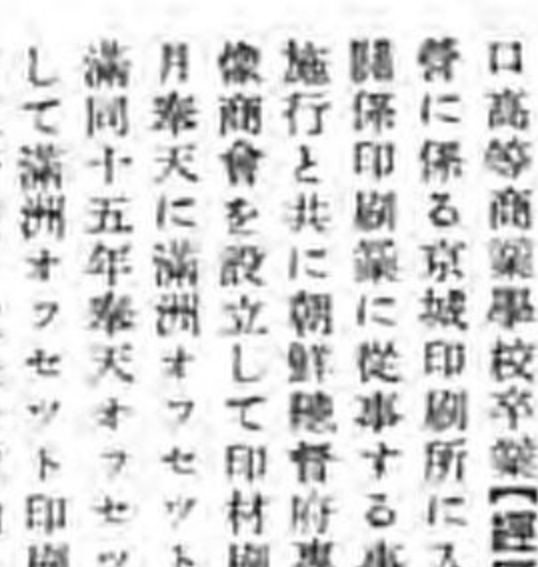 口高等商業學校卒業【經
營に係る京城印刷所に入
關係印刷業に從事する事
施行と共に朝鮮總督府專
像商會を設立して印材刷
月奉天に滿洲オフセツト
滿同十五年奉天オフセツ
して滿洲オフセツト印刷